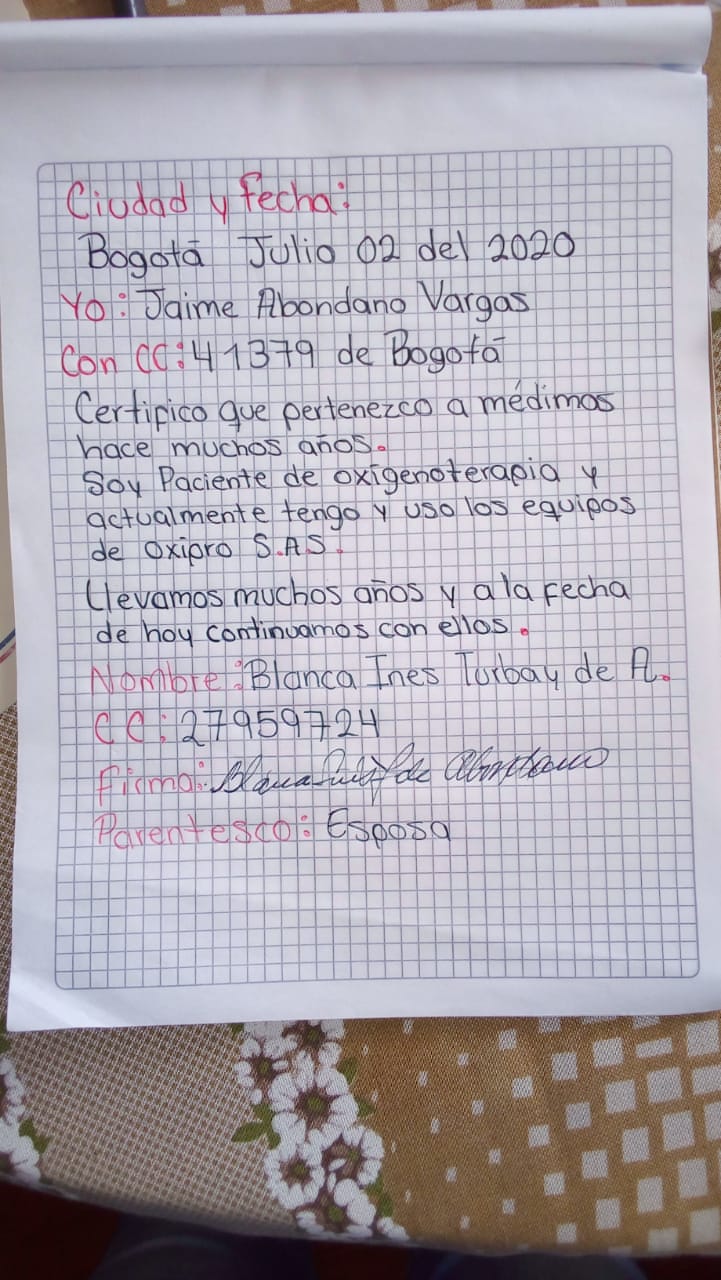 Ciudad y fecha:
Bogotá Julio 02 del 2020
Yo: Jaime Abondano Vargas
Con CC: 41379 de Bogotá
Certifico que pertenezco a médimas
hace muchos años.
Soy Paciente de oxígenoterapia y
actualmente tengo y uso los equipos
de oxipro S.AS.
Llevamos muchos años y a la fecha
de hoy continuamos con ellos.
Nombre: Blanca Ines Turbay de A.
CC: 27959724
Firma: Blanca de Abondano
Parentesco: Esposa